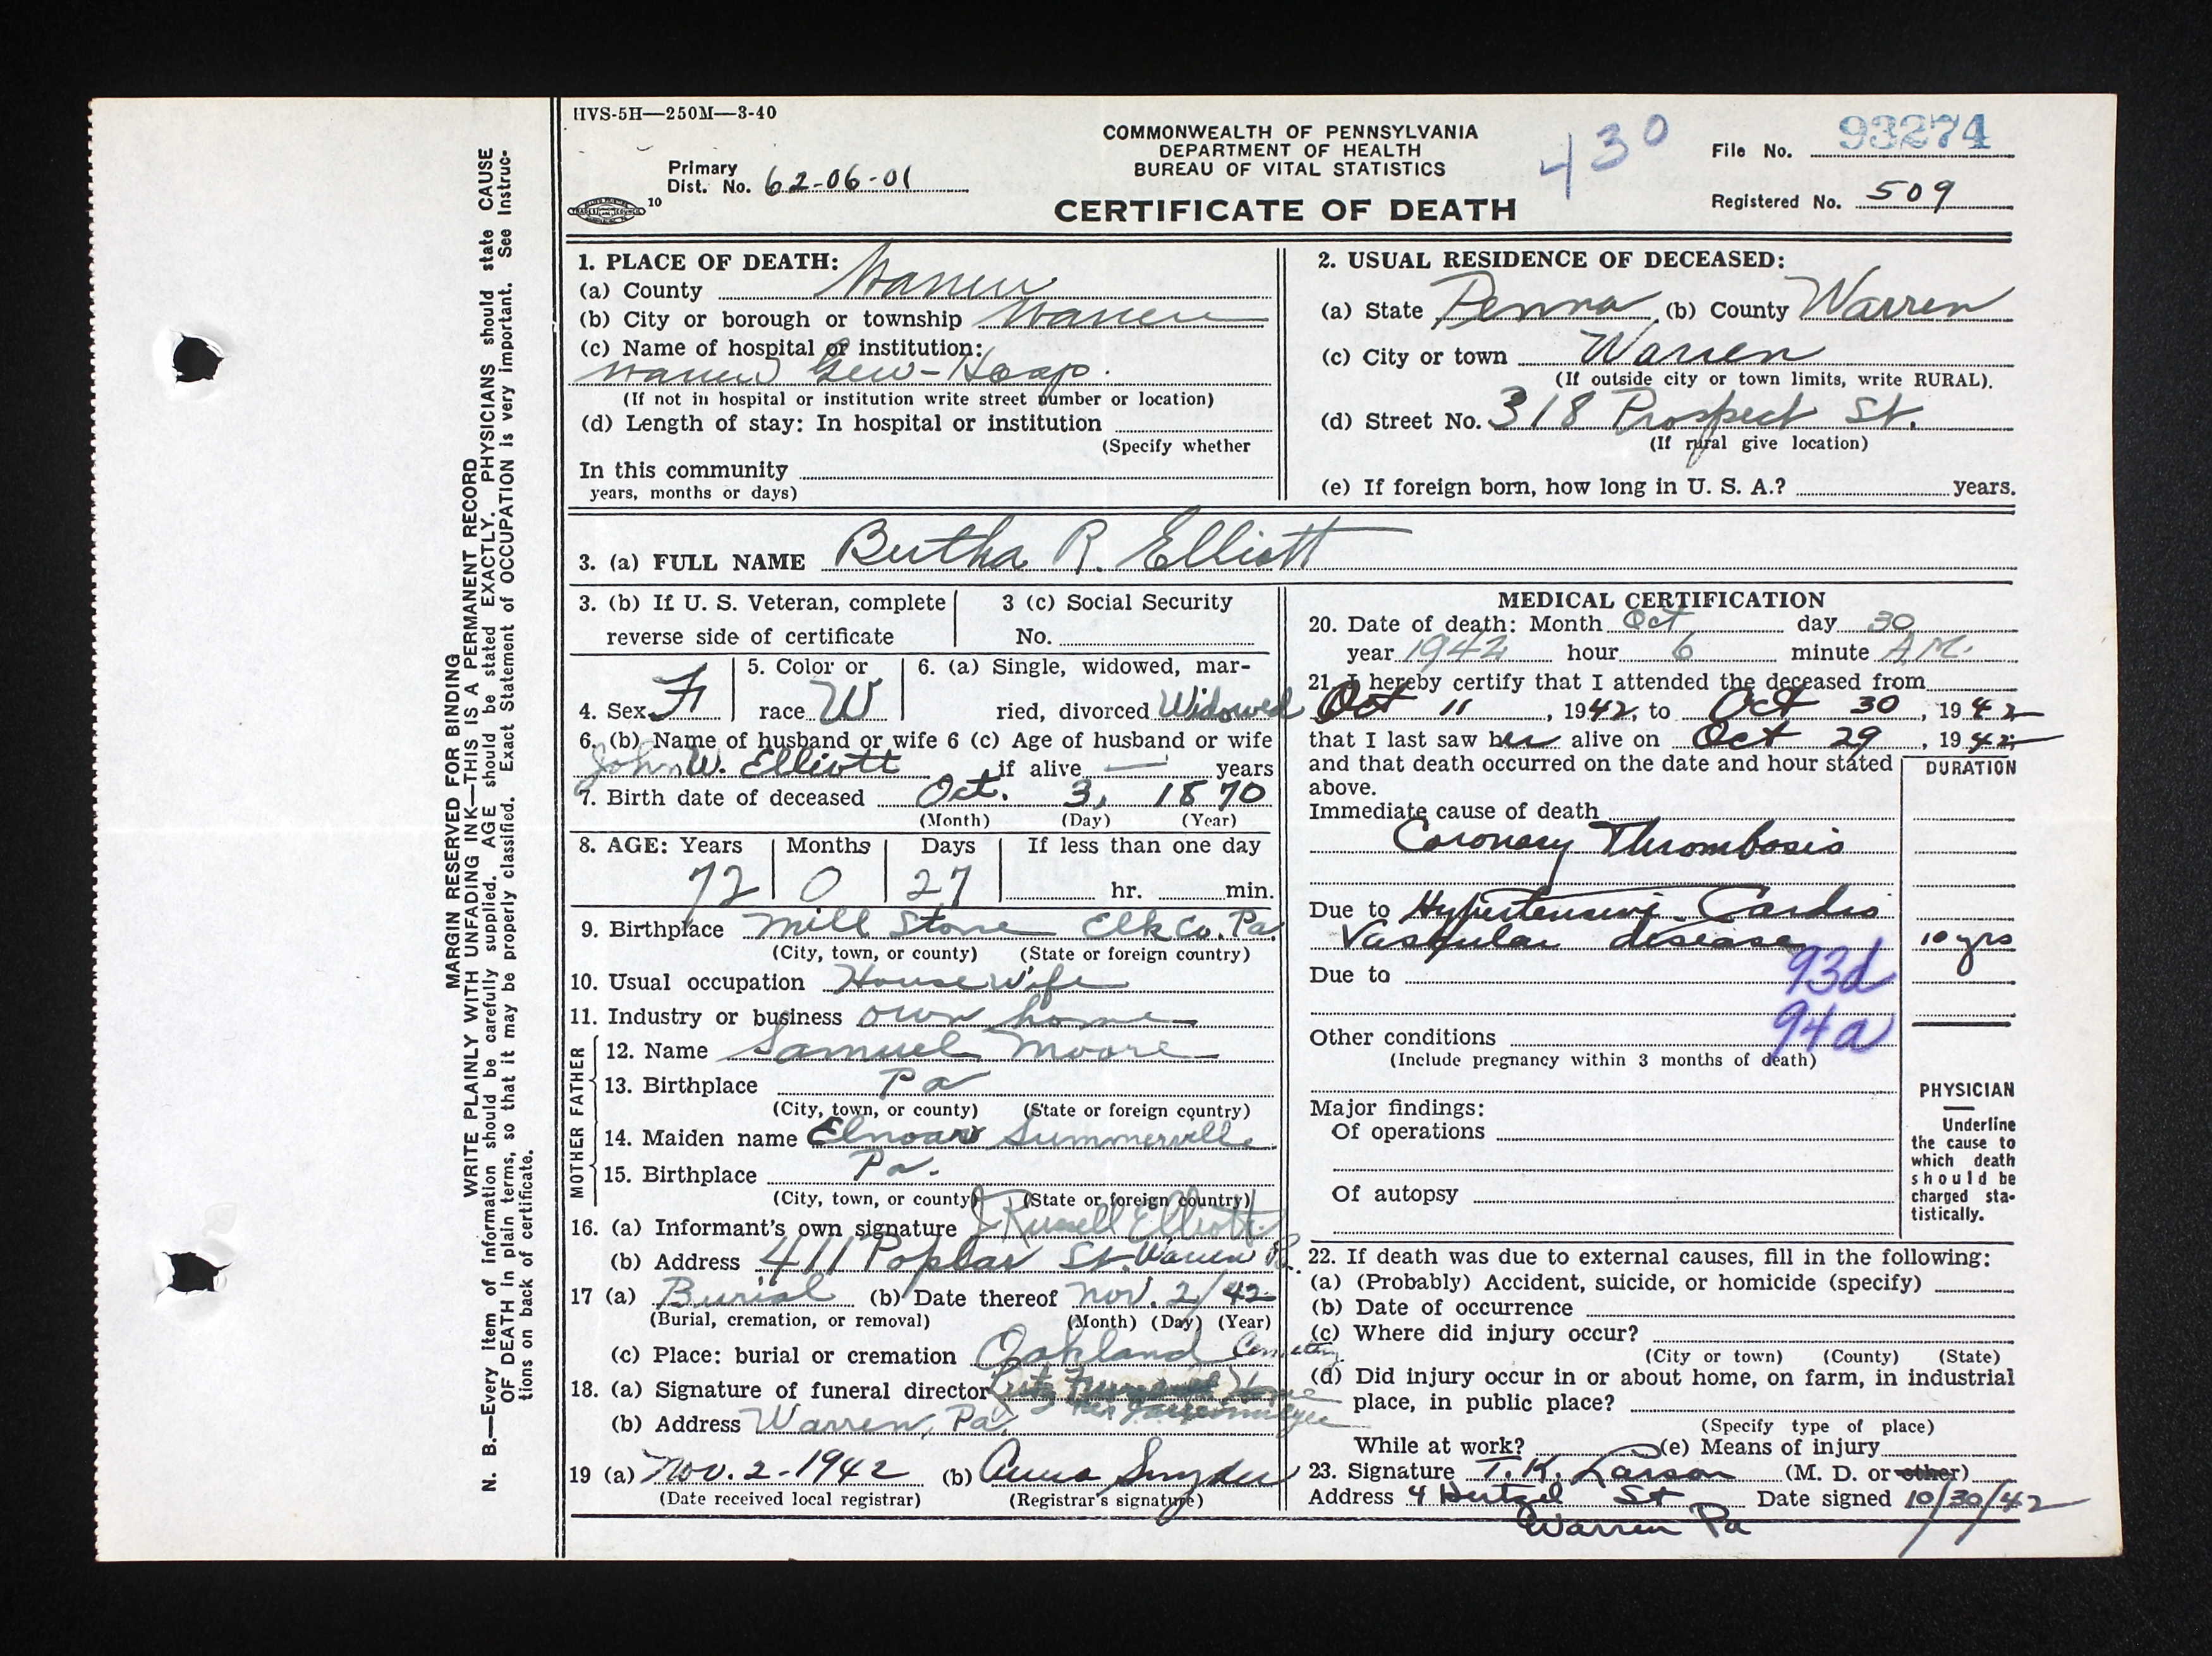 HVS-5H—250M—3-40
COMMONWEALTH OF PENNSYLVANIA
DEPARTMENT OF HEALTH
BUREAU OF VITAL STATISTICS
CERTIFICATE OF DEATH
430
File No. 93274
Registered No. 509
Primary
Dist. No. 62-06-01
10
MARGIN RESERVED FOR BINDING
WRITE PLAINLY WITH UNFADING INK—THIS IS A PERMANENT RECORD
N. B.—Every item of information should be carefully supplied. AGE should be stated EXACTLY. PHYSICIANS should state CAUSE
OF DEATH in plain terms, so that it may be properly classified. Exact Statement of OCCUPATION is very important. See Instruc-
tions on back of certificate.
1. PLACE OF DEATH:
(a) County Warren
(b) City or borough or township Warren
(c) Name of hospital or institution:
Warren Gen-Hosp.
(If not in hospital or institution write street number or location)
(d) Length of stay: In hospital or institution
(Specify whether
In this community
years, months or days)
2. USUAL RESIDENCE OF DECEASED:
(a) State Penna (b) County Warren
(c) City or town Warren
(If outside city or town limits, write RURAL).
(d) Street No. 318 Prospect St.
(If rural give location)
(e) If foreign born, how long in U. S. A.? years.
3. (a) FULL NAME Bertha R. Elliott
3. (b) If U. S. Veteran, complete
reverse side of certificate
3 (c) Social Security
No.
4. Sex F
5. Color or
race W
6. (a) Single, widowed, mar-
ried, divorced Widowed
6. (b) Name of husband or wife
John W. Elliott
6 (c) Age of husband or wife
if alive — years
7. Birth date of deceased Oct. 3, 1870
(Month) (Day) (Year)
8. AGE: Years Months Days If less than one day
72 0 27 hr. min.
9. Birthplace Mill Stone Elk Co. Pa.
(City, town, or county) (State or foreign country)
10. Usual occupation Housewife
11. Industry or business own home
FATHER
12. Name Samuel Moore
13. Birthplace Pa
(City, town, or county) (State or foreign country)
MOTHER
14. Maiden name Elnoar Summerville
15. Birthplace Pa.
(City, town, or county) (State or foreign country)
16. (a) Informant's own signature J Russell Elliott
(b) Address 411 Poplar St. Warren Pa.
17 (a) Burial (b) Date thereof Nov. 2/42
(Burial, cremation, or removal) (Month) (Day) (Year)
(c) Place: burial or cremation Oakland Cemetery
18. (a) Signature of funeral director Home
(b) Address Warren, Pa.
19 (a) Nov. 2-1942 (b) Anna Snyder
(Date received local registrar) (Registrar's signature)
MEDICAL CERTIFICATION
20. Date of death: Month Oct day 30
year 1942 hour 6 minute A.M.
21. I hereby certify that I attended the deceased from
Oct 11, 1942, to Oct 30, 1942
that I last saw her alive on Oct 29, 1942
and that death occurred on the date and hour stated
above.
DURATION
Immediate cause of death
Coronary Thrombosis
Due to Hypertensive Cardio
Vascular disease 10 yrs
Due to 93d
94a
Other conditions
(Include pregnancy within 3 months of death)
Major findings:
Of operations
Of autopsy
PHYSICIAN
Underline
the cause to
which death
should be
charged sta-
tistically.
22. If death was due to external causes, fill in the following:
(a) (Probably) Accident, suicide, or homicide (specify)
(b) Date of occurrence
(c) Where did injury occur?
(City or town) (County) (State)
(d) Did injury occur in or about home, on farm, in industrial
place, in public place?
(Specify type of place)
While at work? (e) Means of injury
23. Signature T. K. Larson (M. D. or other)
Address 4 Hertzel St Date signed 10/30/42
Warren Pa